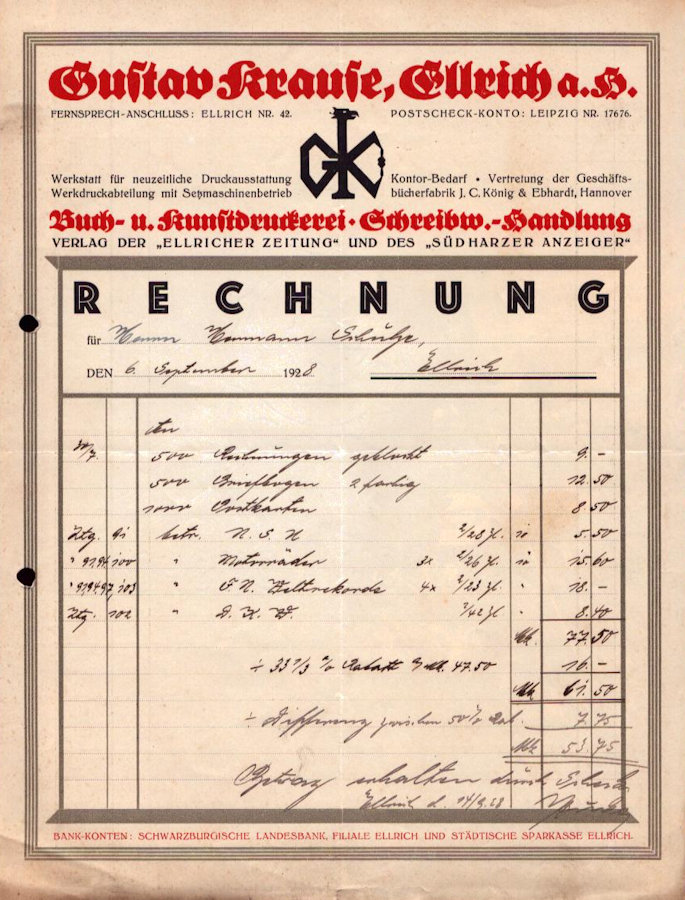 Gustav Krause, Ellrich a. H.
FERNSPRECH-ANSCHLUSS: ELLRICH NR. 42.
POSTSCHECK-KONTO: LEIPZIG NR. 17676.
GK
Werkstatt für neuzeitliche Druckausstattung
Werkdruckabteilung mit Setzmaschinenbetrieb
Kontor-Bedarf • Vertretung der Geschäfts-
bücherfabrik J. C. König & Ebhardt, Hannover
Buch- u. Kunstdruckerei · Schreibw.-Handlung
VERLAG DER „ELLRICHER ZEITUNG“ UND DES „SÜDHARZER ANZEIGER“
RECHNUNG
für Herrn Hermann Schulze,
DEN 6. September 1928 Ellrich
An
500 Rechnungen geblockt 9.–
500 Briefbogen 2 farbig 12.50
1000 Postkarten 8.50
Ztg. 91 betr. N.S.U 5.50
" 91.94.100 " Motorräder 3x 15.60
" 91.94.97.103 " F.N. Weltrekorde 4x 18.–
Ztg. 102 " D.K.W. 8.40
Mk. 77.50
÷ 33 1/3 % Rabatt 47.50 16.–
Mk. 61.50
÷ Differenz zwischen 50% Rab. 7.75
Mk 53.75
Betrag erhalten durch
Ellrich d. 14/9.28
BANK-KONTEN: SCHWARZBURGISCHE LANDESBANK, FILIALE ELLRICH UND STÄDTISCHE SPARKASSE ELLRICH.